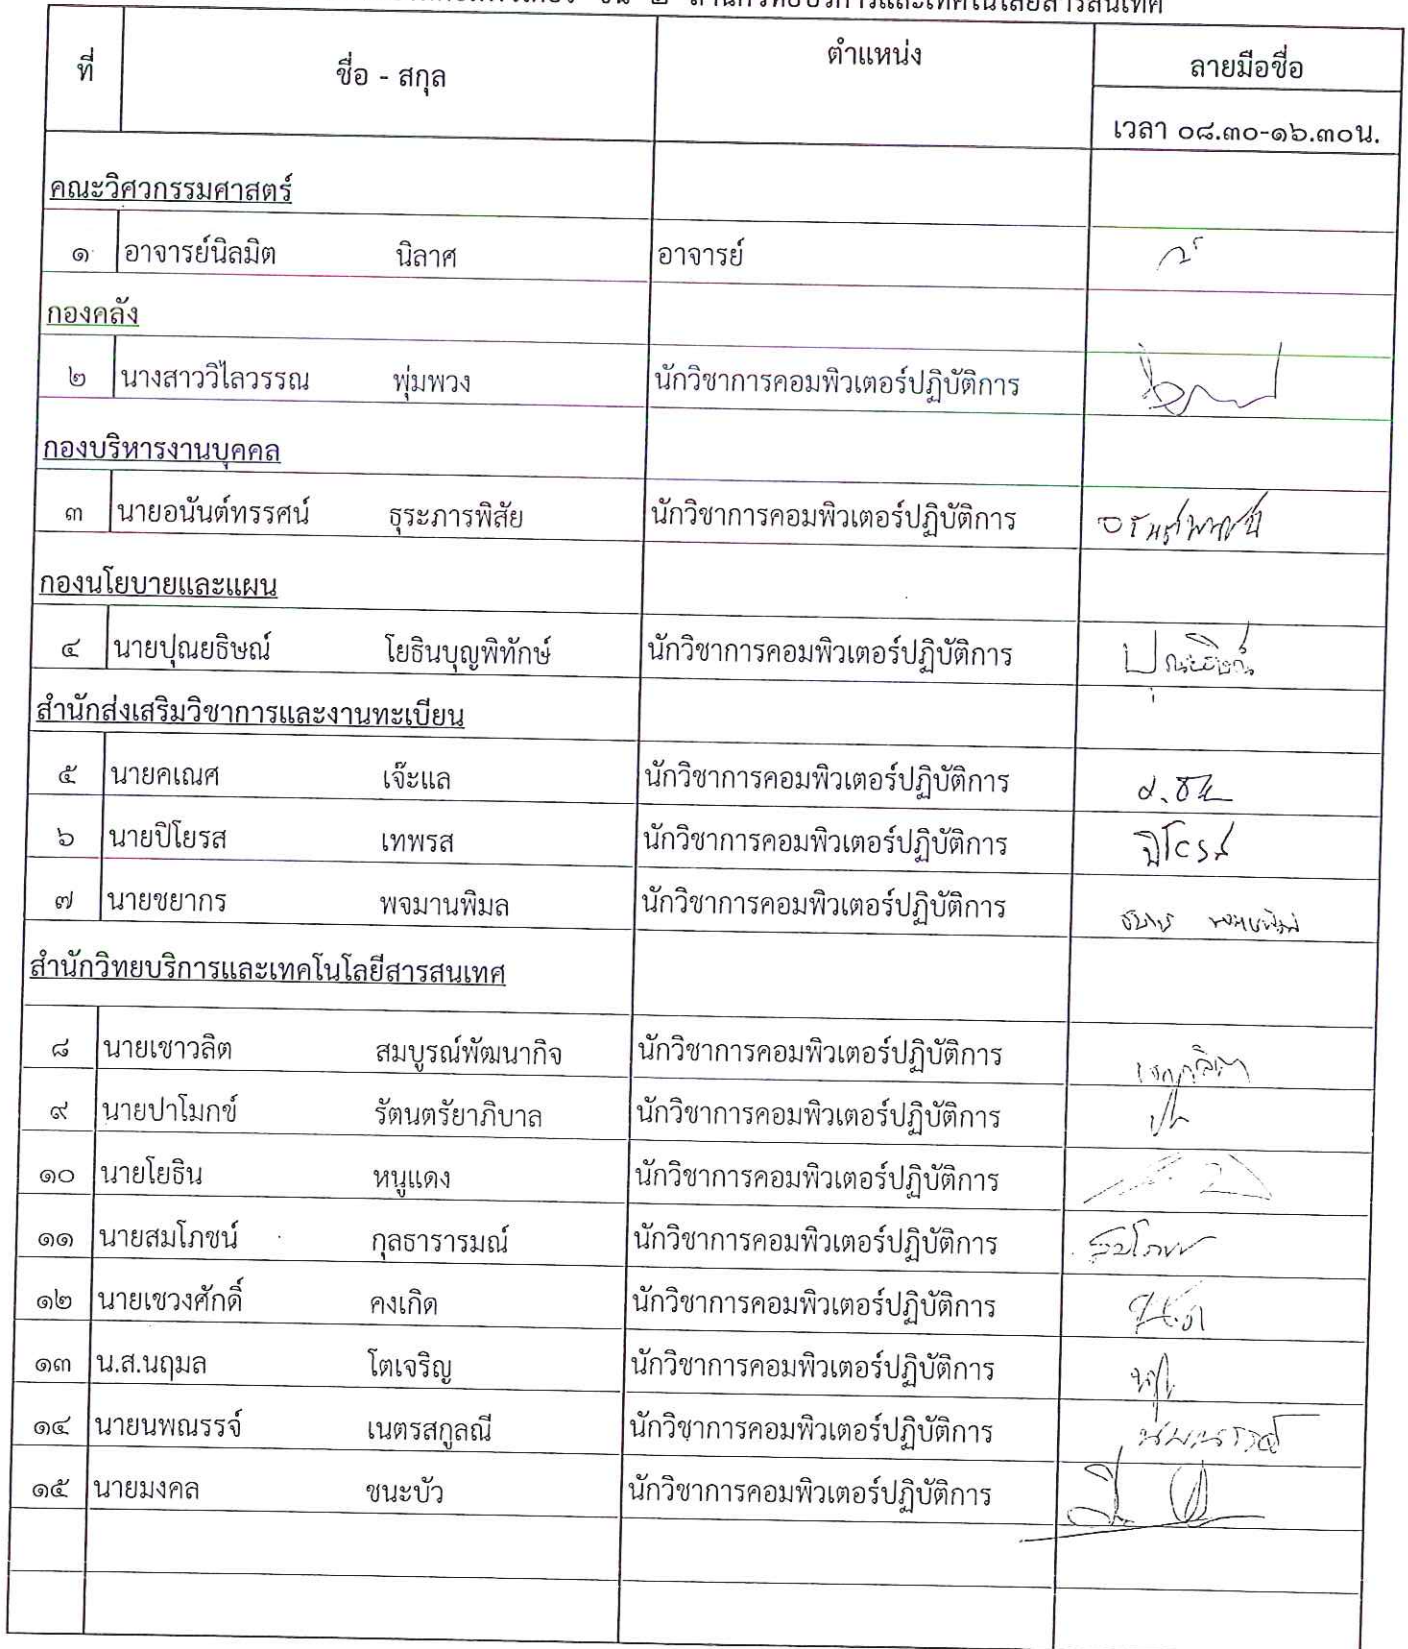 ชั้น ๒ สำนักวิทยบริการและเทคโนโลยีสารสนเทศ
ที่ ชื่อ - สกุล ตำแหน่ง ลายมือชื่อ
เวลา ๐๘.๓๐-๑๖.๓๐น.
คณะวิศวกรรมศาสตร์
๑ อาจารย์นิลมิต นิลาศ อาจารย์
กองคลัง
๒ นางสาววิไลวรรณ พุ่มพวง นักวิชาการคอมพิวเตอร์ปฏิบัติการ
กองบริหารงานบุคคล
๓ นายอนันต์ทรรศน์ ธุระภารพิสัย นักวิชาการคอมพิวเตอร์ปฏิบัติการ
กองนโยบายและแผน
๔ นายปุณยธิษณ์ โยธินบุญพิทักษ์ นักวิชาการคอมพิวเตอร์ปฏิบัติการ
สำนักส่งเสริมวิชาการและงานทะเบียน
๕ นายคเณศ เจ๊ะแล นักวิชาการคอมพิวเตอร์ปฏิบัติการ
๖ นายปิโยรส เทพรส นักวิชาการคอมพิวเตอร์ปฏิบัติการ ปิโยรส
๗ นายชยากร พจมานพิมล นักวิชาการคอมพิวเตอร์ปฏิบัติการ
สำนักวิทยบริการและเทคโนโลยีสารสนเทศ
๘ นายเชาวลิต สมบูรณ์พัฒนากิจ นักวิชาการคอมพิวเตอร์ปฏิบัติการ
๙ นายปาโมกข์ รัตนตรัยาภิบาล นักวิชาการคอมพิวเตอร์ปฏิบัติการ
๑๐ นายโยธิน หนูแดง นักวิชาการคอมพิวเตอร์ปฏิบัติการ
๑๑ นายสมโภชน์ กุลธารารมณ์ นักวิชาการคอมพิวเตอร์ปฏิบัติการ
๑๒ นายเชวงศักดิ์ คงเกิด นักวิชาการคอมพิวเตอร์ปฏิบัติการ
๑๓ น.ส.นฤมล โตเจริญ นักวิชาการคอมพิวเตอร์ปฏิบัติการ
๑๔ นายนพณรรจ์ เนตรสกูลณี นักวิชาการคอมพิวเตอร์ปฏิบัติการ
๑๕ นายมงคล ชนะบัว นักวิชาการคอมพิวเตอร์ปฏิบัติการ